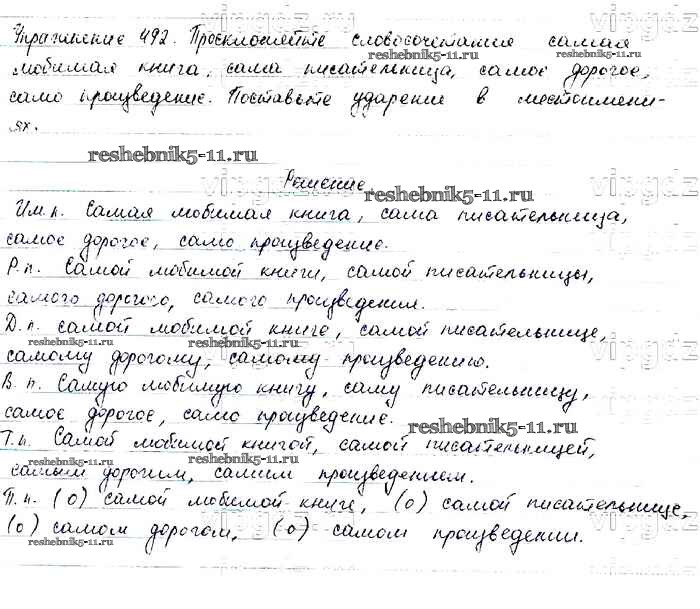 Упражнение 492. Просклоняйте словосочетания самая
любимая книга, сама писательница, самое дорогое,
само произведение. Поставьте ударение в местоимени-
ях.
reshebnik5-11.ru
Решение.
Им.п. Самая любимая книга, сама писательница,
самое дорогое, само произведение.
Р.п. Самой любимой книги, самой писательницы,
самого дорогого, самого произведения.
Д.п. самой любимой книге, самой писательнице,
самому дорогому, самому произведению.
В.п. Самую любимую книгу, саму писательницу,
самое дорогое, само произведение.
Т.п. Самой любимой книгой, самой писательницей,
самым дорогим, самим произведением.
П.п. (о) самой любимой книге, (о) самой писательнице,
(о) самом дорогом, (о) самом произведении.
reshebnik5-11.ru